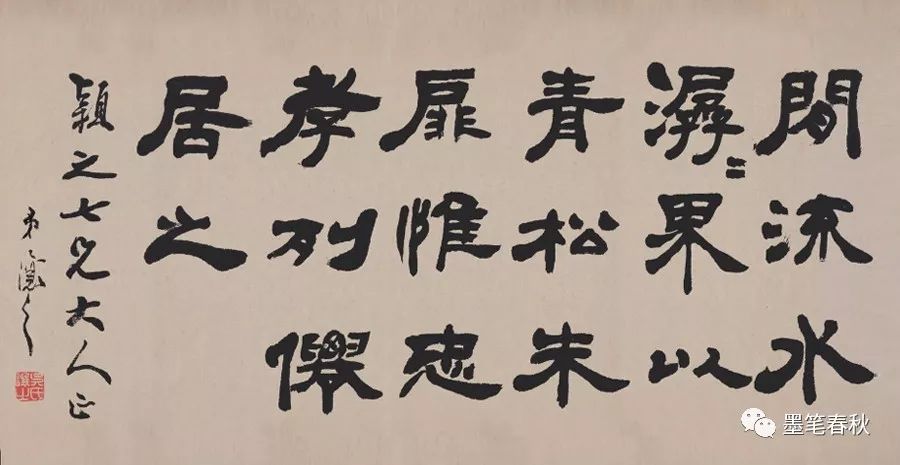 閒流水
潺〻果以
青松朱
扉惟忠
孝列僊
居之
穎之七兄大人正
弟讓之
墨笔春秋